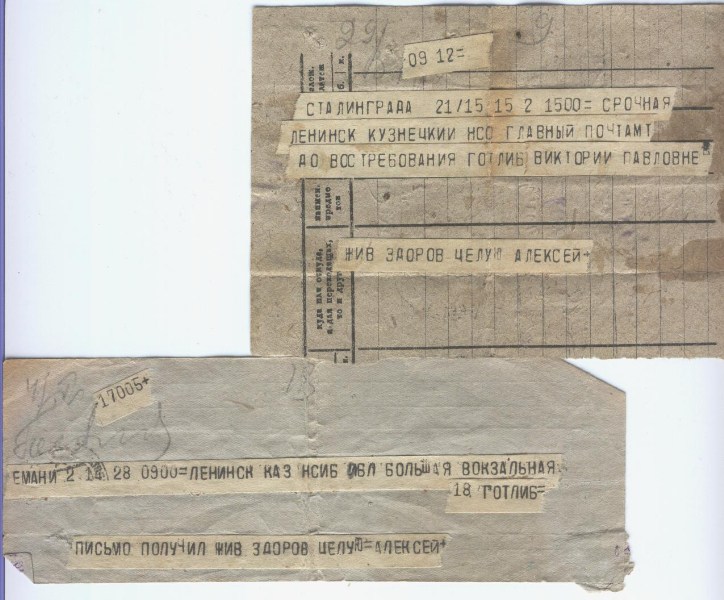 09 12=
СТАЛИНГРАДА 21/15 15 2 1500= СРОЧНАЯ
ЛЕНИНСК КУЗНЕЦКИЙ НСО ГЛАВНЫЙ ПОЧТАМТ
ДО ВОСТРЕБОВАНИЯ ГОТЛИБ ВИКТОРИИ ПАВЛОВНЕ
ЖИВ ЗДОРОВ ЦЕЛУЮ АЛЕКСЕЙ+
17005+
ЕМАНИ 2 14 28 0900=ЛЕНИНСК КАЗ НСИБ ОБЛ БОЛЬШАЯ ВОКЗАЛЬНАЯ
18 ГОТЛИБ=
ПИСЬМО ПОЛУЧИЛ ЖИВ ЗДОРОВ ЦЕЛУЮ=АЛЕКСЕЙ+